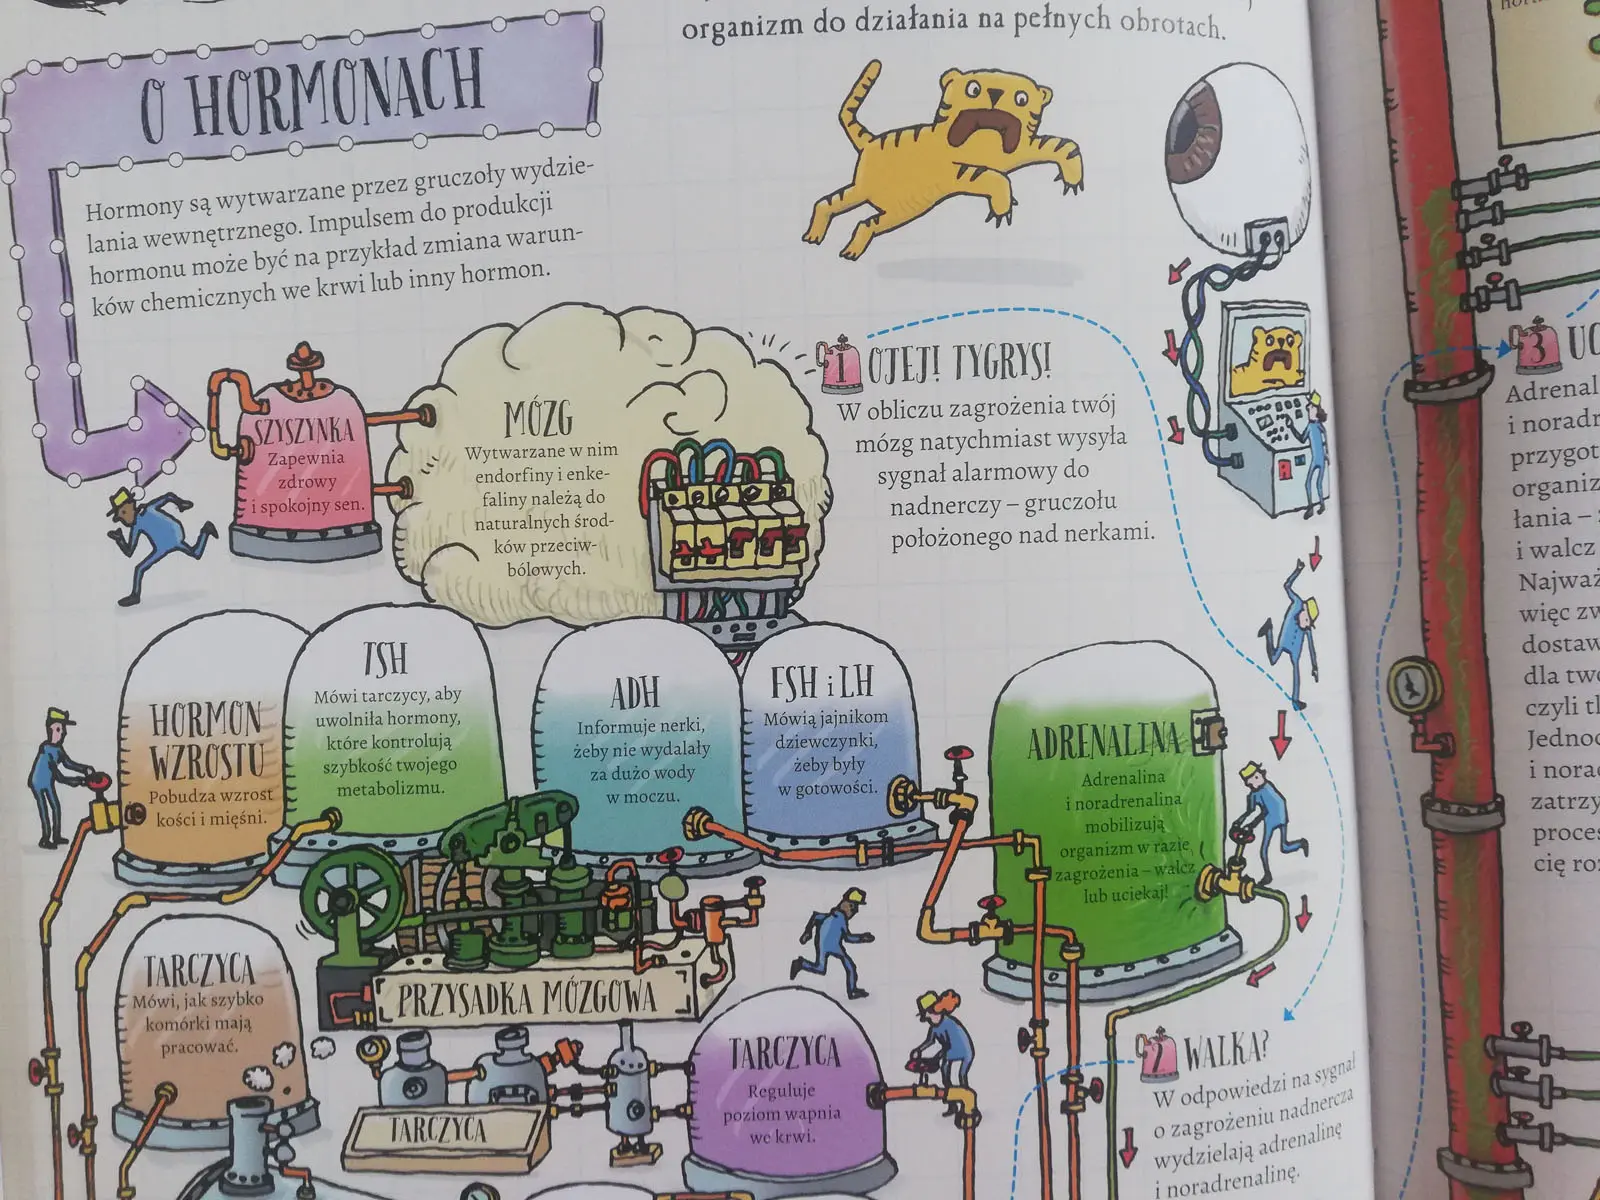 organizm do działania na pełnych obrotach.
O HORMONACH
Hormony są wytwarzane przez gruczoły wydzie-
lania wewnętrznego. Impulsem do produkcji
hormonu może być na przykład zmiana warun-
ków chemicznych we krwi lub inny hormon.
SZYSZYNKA
Zapewnia
zdrowy
i spokojny sen.
MÓZG
Wytwarzane w nim
endorfiny i enke-
faliny należą do
naturalnych środ-
ków przeciw-
bólowych.
1 OJEJ! TYGRYS!
W obliczu zagrożenia twój
mózg natychmiast wysyła
sygnał alarmowy do
nadnerczy – gruczołu
położonego nad nerkami.
HORMON
WZROSTU
Pobudza wzrost
kości i mięśni.
TSH
Mówi tarczycy, aby
uwolniła hormony,
które kontrolują
szybkość twojego
metabolizmu.
ADH
Informuje nerki,
żeby nie wydalały
za dużo wody
w moczu.
FSH i LH
Mówią jajnikom
dziewczynki,
żeby były
w gotowości.
ADRENALINA
Adrenalina
i noradrenalina
mobilizują
organizm w razie
zagrożenia – walcz
lub uciekaj!
PRZYSADKA MÓZGOWA
TARCZYCA
Mówi, jak szybko
komórki mają
pracować.
TARCZYCA
TARCZYCA
Reguluje
poziom wapnia
we krwi.
2 WALKA?
W odpowiedzi na sygnał
o zagrożeniu nadnercza
wydzielają adrenalinę
i noradrenalinę.
3
i walcz